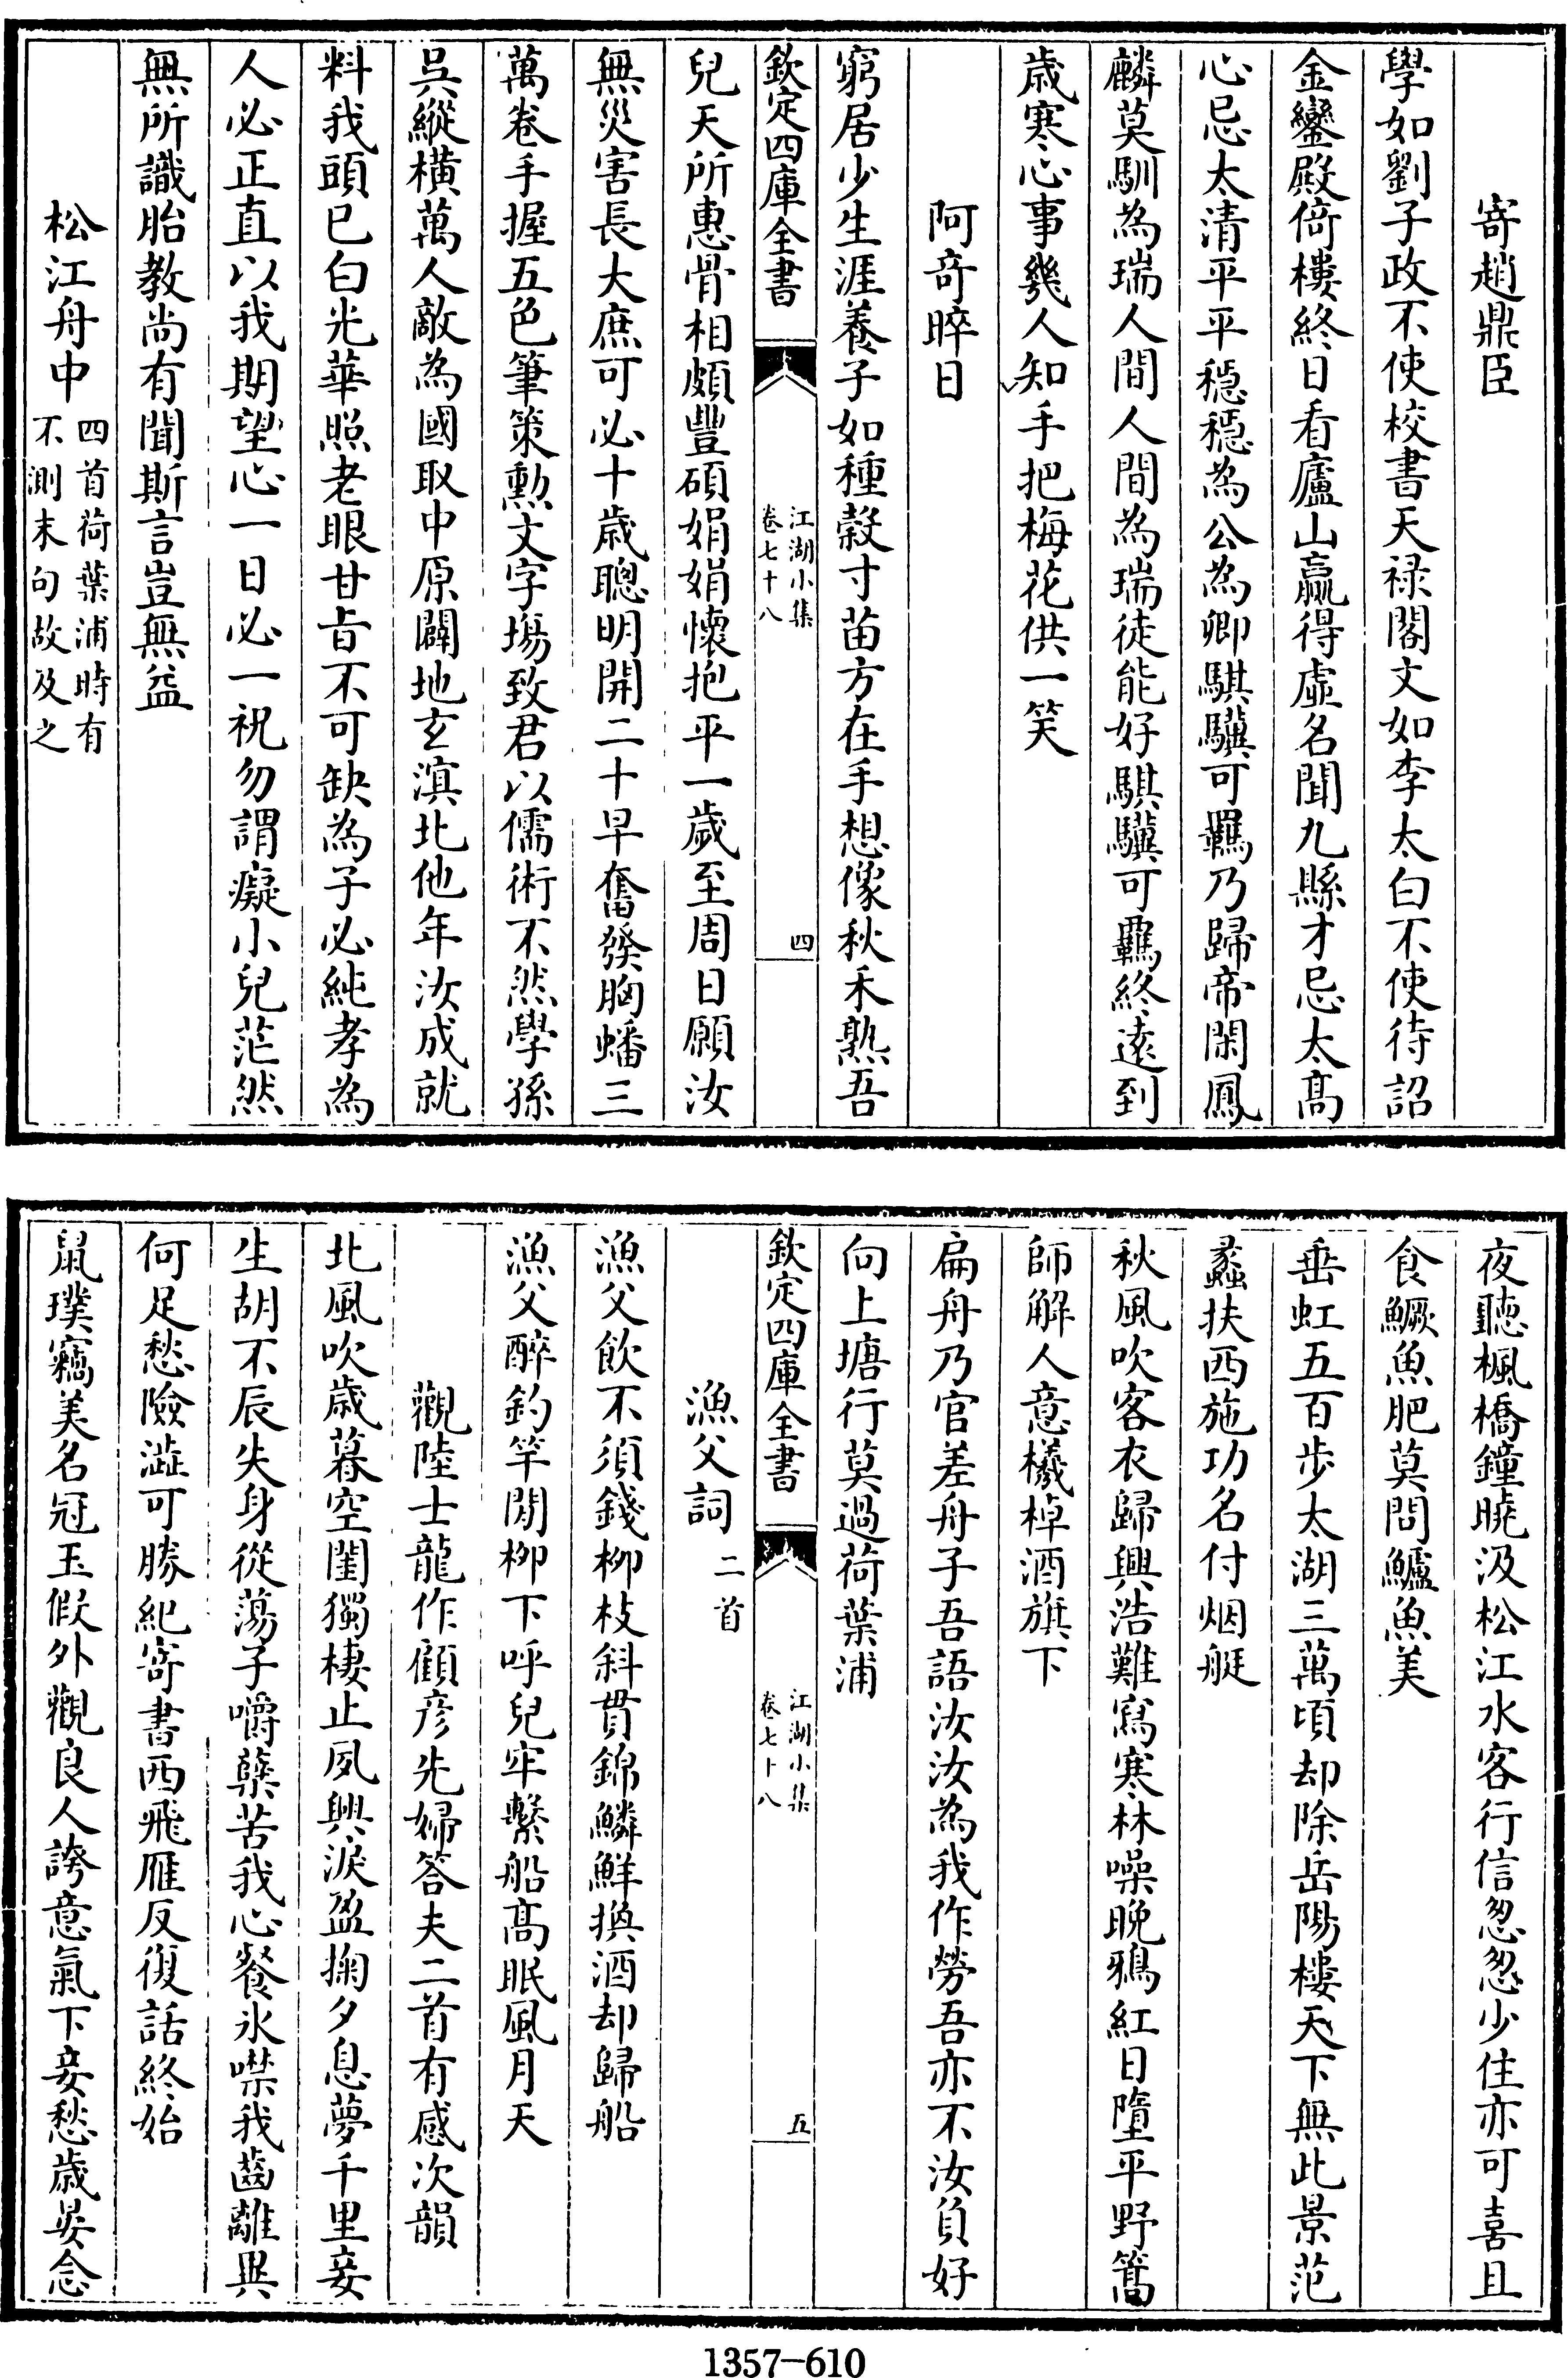 寄趙鼎臣
學如劉子政不使校書天禄閣文如李太白不使待詔
金鑾殿倚樓終日看廬山贏得虛名聞九縣才忌太髙
心忌太清平平穏穏為公為卿騏驥可羈乃歸帝閑鳳
麟莫馴為瑞人間人間為瑞徒能好騏驥可羈終逺到
歳寒心事幾人知手把梅花供一笑
阿竒晬日
窮居少生涯養子如種穀寸苗方在手想像秋禾熟吾
欽定四庫全書
江湖小集
卷七十八
四
兒天所惠骨相頗豐碩娟娟懷抱平一歲至周日願汝
無災害長大庶可必十歳聰明開二十早奮發胸蟠三
萬卷手握五色筆策勲文字塲致君以儒術不然學孫
吳縱橫萬人敵為國取中原闢地玄滇北他年汝成就
料我頭已白光華照老眼甘㫖不可缺為子必純孝為
人必正直以我期望心一日必一祝勿謂癡小兒茫然
無所識胎教尚有聞斯言豈無益
松江舟中
四首荷葉浦時有
不測末句故及之
夜聽楓橋鐘曉汲松江水客行信怱怱少住亦可喜且
食鱖魚肥莫問鱸魚美
垂虹五百步太湖三萬頃却除岳陽樓天下無此景范
蠡扶西施功名付烟艇
秋風吹客衣歸興浩難寫寒林噪晚鴉紅日墮平野篙
師解人意檥棹酒旗下
扁舟乃官差舟子吾語汝汝為我作勞吾亦不汝負好
向上塘行莫過荷葉浦
欽定四庫全書
江湖小集
卷七十八
五
漁父詞
二首
漁父飲不須錢柳枝斜貫錦鱗鮮換酒却歸船
漁父醉釣竿閒柳下呼兒牢繫船髙眠風月天
觀陸士龍作顧彦先婦答夫二首有感次韻
北風吹歳暮空閨獨棲止夙興淚盈掬夕息夢千里妾
生胡不辰失身從蕩子嚼蘗苦我心餐氷噤我齒離異
何足愁險澁可勝紀寄書西飛雁反復話終始
鼠璞竊美名冠玉假外觀良人誇意氣下妾愁歳晏念
1357—610